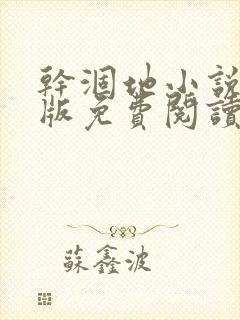 幹涸地小說
版免費閱讀
蘇鑫波